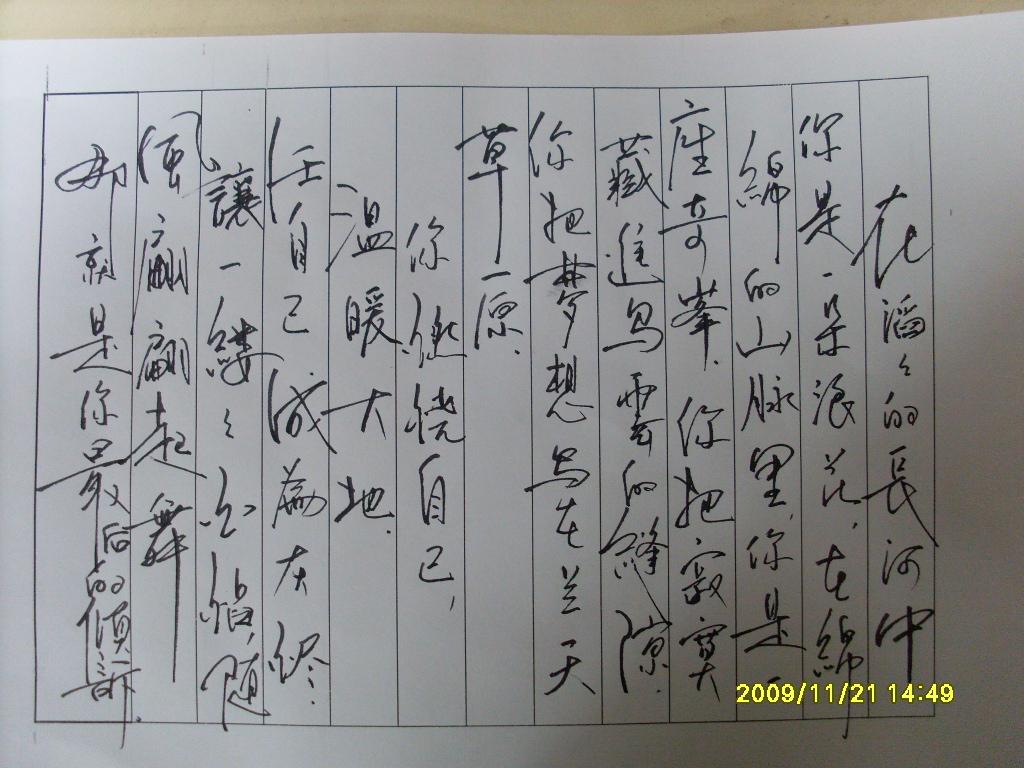 在滔々的長河中
你是一朵浪花,在綿
綿的山脉里,你是一
座奇峯,你把寂寞
藏進烏雲的縫隙.
你把梦想写在兰天
草原.
你燃烧自己,
温暖大地.
任自己成為灰
讓一縷々,随
風翩翩起舞
那就是你最后的傾訴.
2009/11/21 14:49